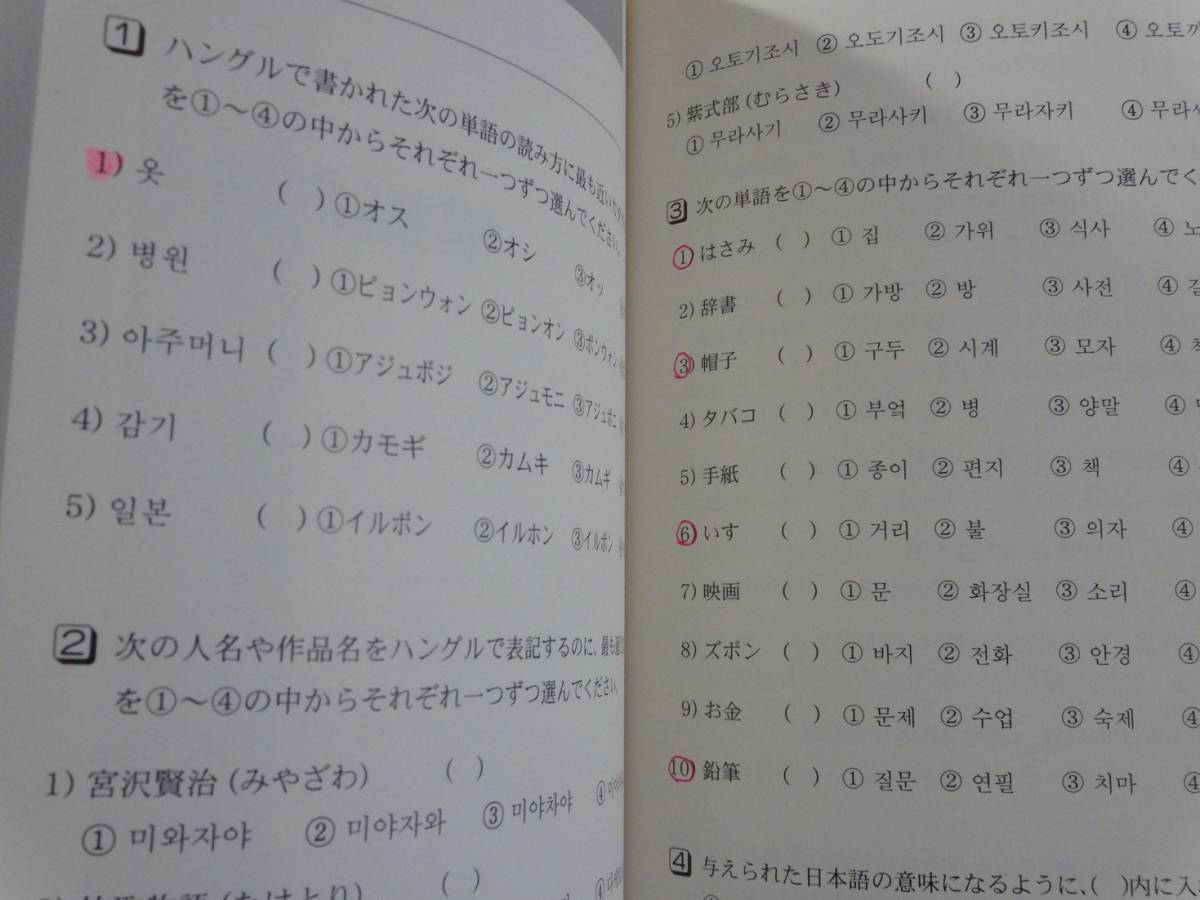 1 ハングルで書かれた次の単語の読み方に最も近い
を①～④の中からそれぞれ一つずつ選んでください。
1) 옷 ( ) ①オス ②オシ ③オッ
2) 병원 ( ) ①ピョンウォン ②ピョンオン ③ポンウォン
3) 아주머니 ( ) ①アジュボジ ②アジュモニ ③アジュポニ
4) 감기 ( ) ①カモギ ②カムキ ③カムギ
5) 일본 ( ) ①イルボン ②イルホン ③イルポン
2 次の人名や作品名をハングルで表記するのに、最も
を①～④の中からそれぞれ一つずつ選んでください。
1) 宮沢賢治 (みやざわ) ( )
① 미와자야 ② 미야자와 ③ 미야차야 ④
( )
① 오토기조시 ② 오도기조시 ③ 오토키조시 ④ 오토
5) 紫式部 (むらさき) ( )
① 무라사기 ② 무라사키 ③ 무라자키 ④ 무라
3 次の単語を①～④の中からそれぞれ一つずつ選んでく
1) はさみ ( ) ① 집 ② 가위 ③ 식사 ④
2) 辞書 ( ) ① 가방 ② 방 ③ 사전 ④
3) 帽子 ( ) ① 구두 ② 시계 ③ 모자 ④
4) タバコ ( ) ① 부엌 ② 병 ③ 양말 ④
5) 手紙 ( ) ① 종이 ② 편지 ③ 책 ④
6) いす ( ) ① 거리 ② 불 ③ 의자 ④
7) 映画 ( ) ① 문 ② 화장실 ③ 소리 ④
8) ズボン ( ) ① 바지 ② 전화 ③ 안경 ④
9) お金 ( ) ① 문제 ② 수업 ③ 숙제 ④
10) 鉛筆 ( ) ① 질문 ② 연필 ③ 치마 ④
4 与えられた日本語の意味になるように、( )内に入